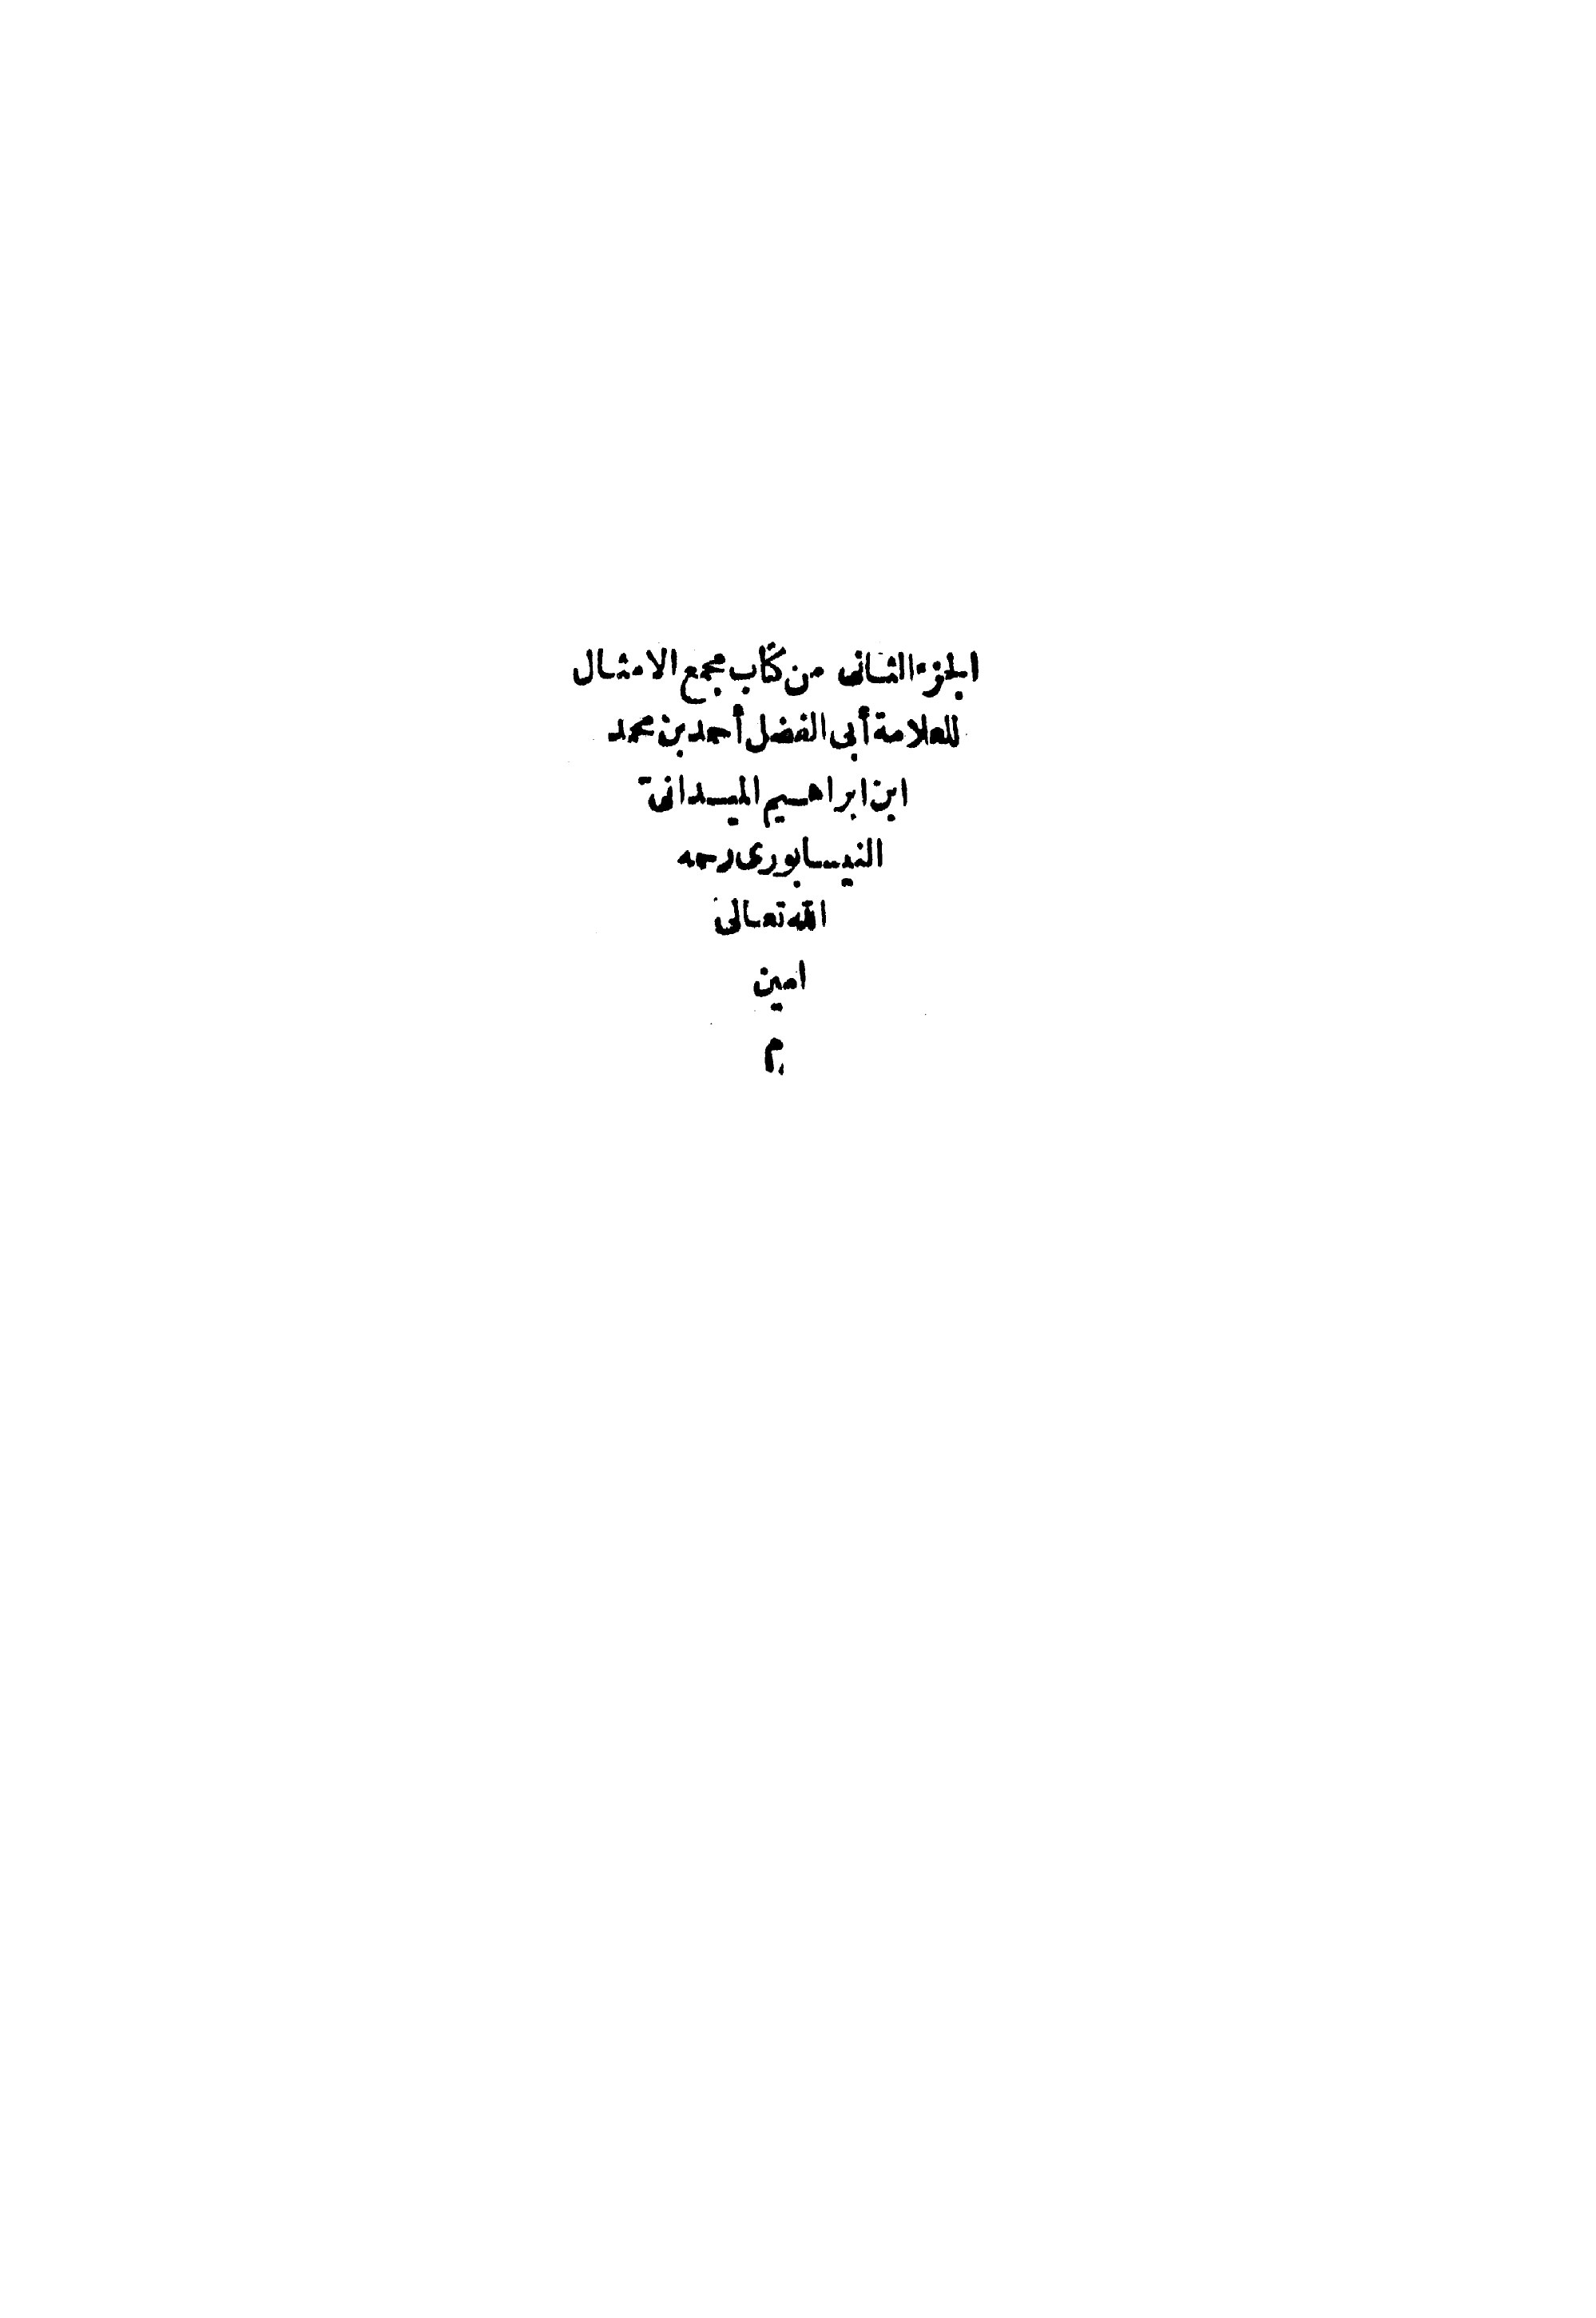 الجزء الثانى من كتاب مجمع الامثال
للعلامة أبى الفضل أحمد بن محمد
ابن ابراهيم الميدانى
النيسابورى رحمه
الله تعالى
امين
م